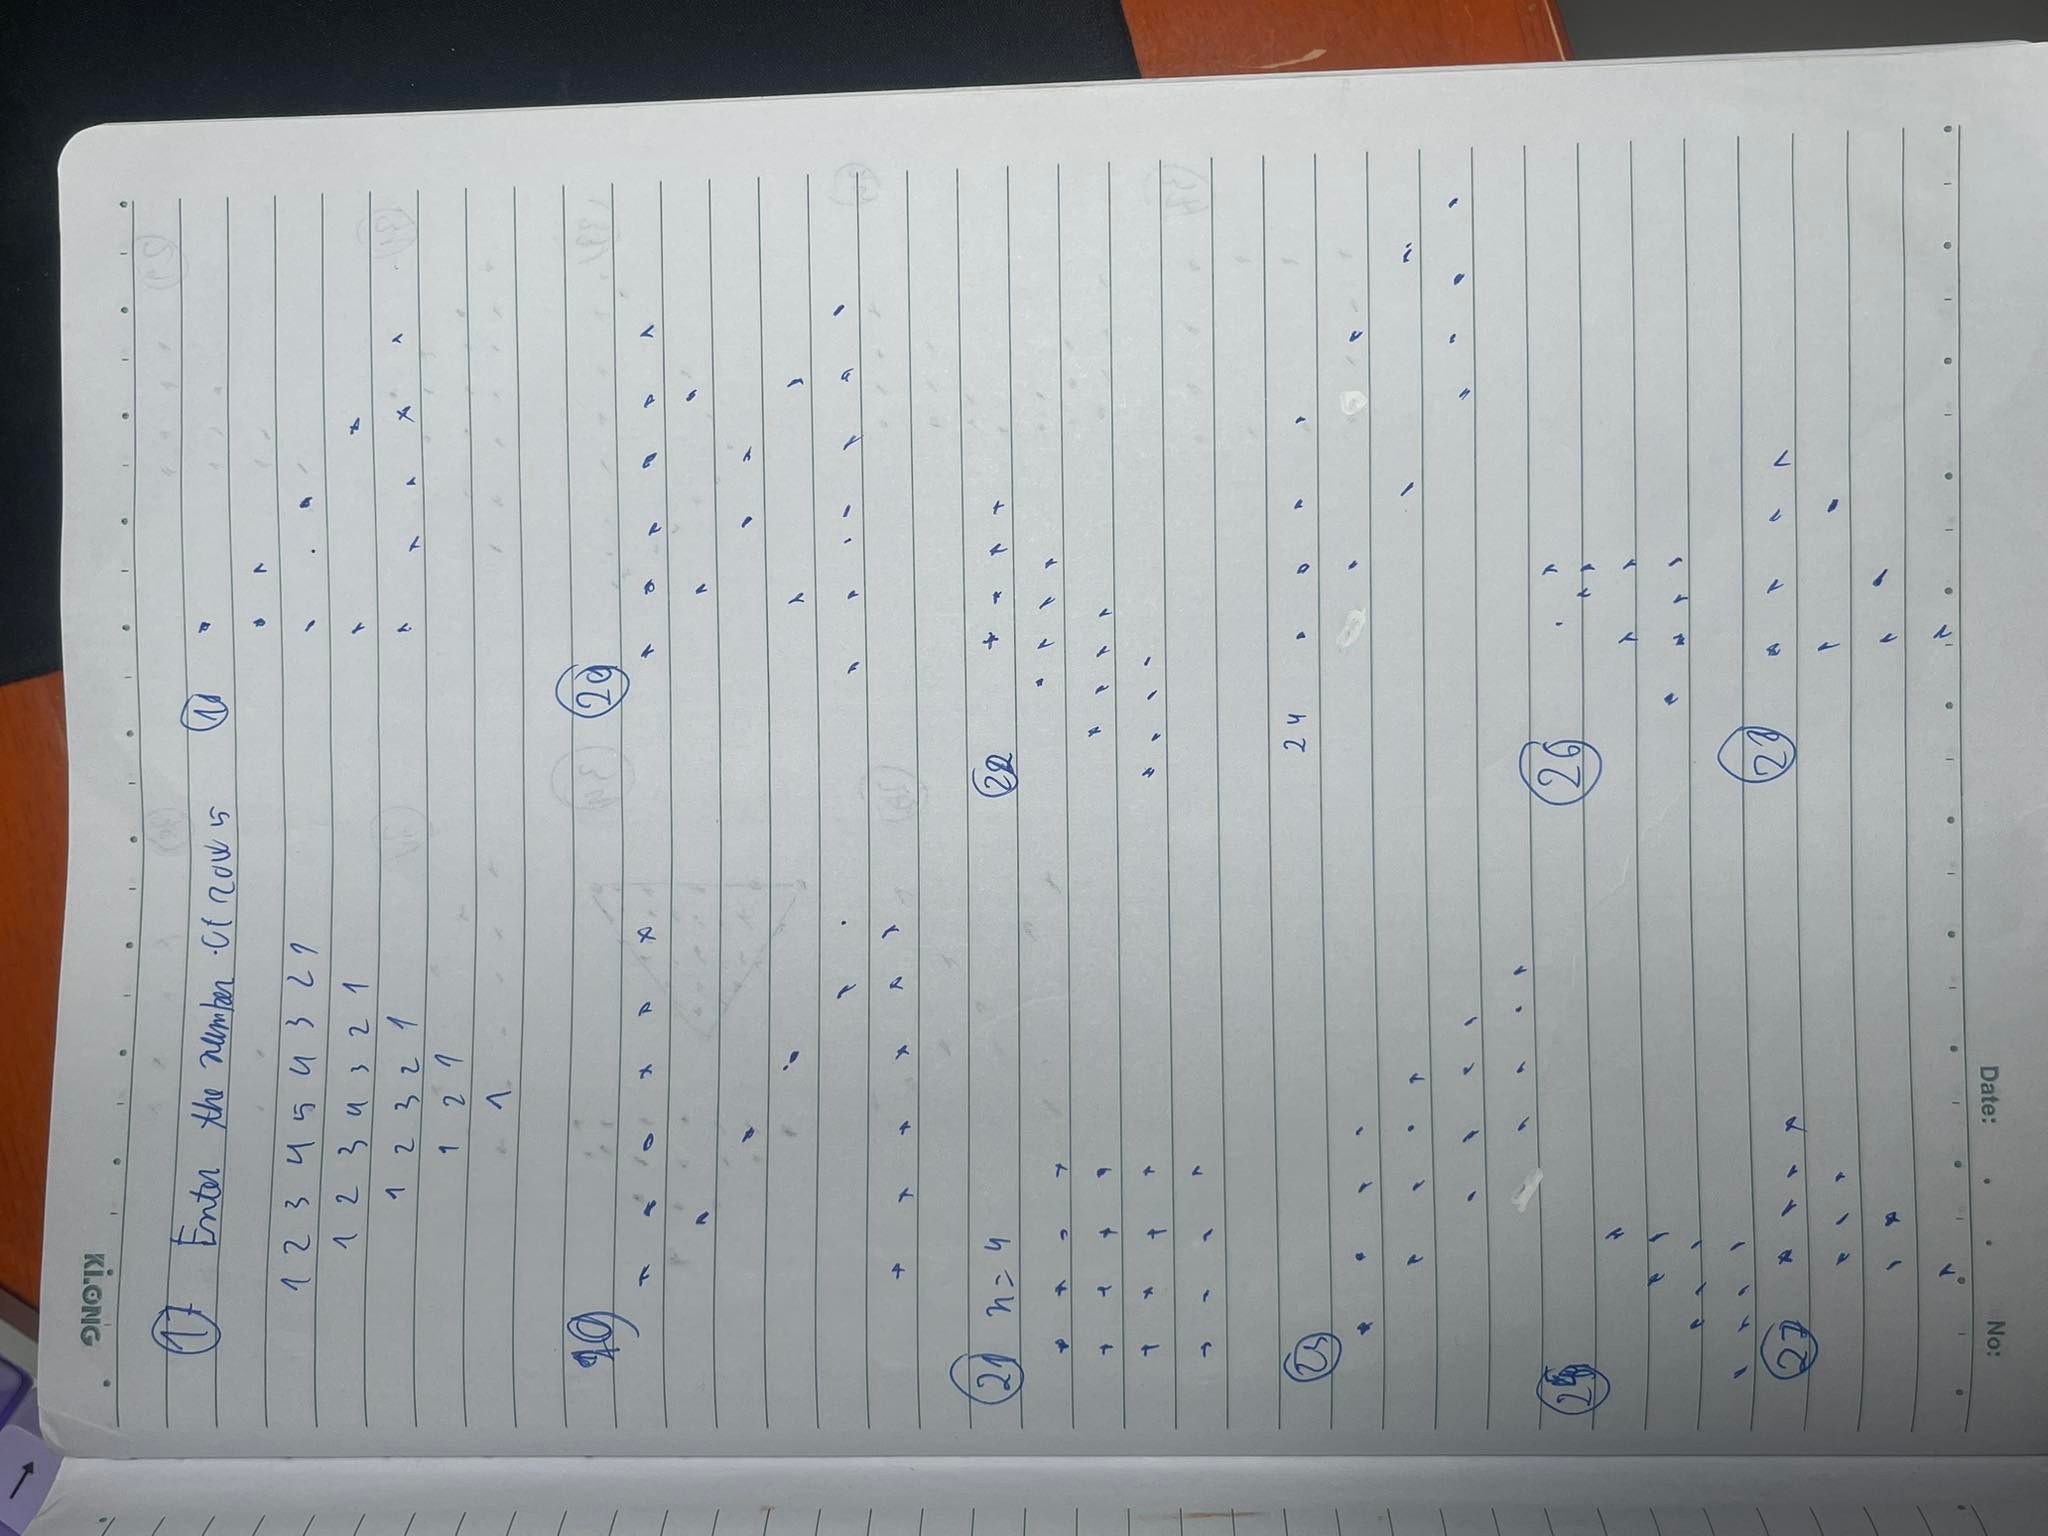 KI.ONG
No:
Date:
17 Enter the number of row 5
1 2 3 4 5 4 3 2 1
1 2 3 4 3 2 1
1 2 3 2 1
1 2 1
1
20
21 n = 4
22
23
24
26
27